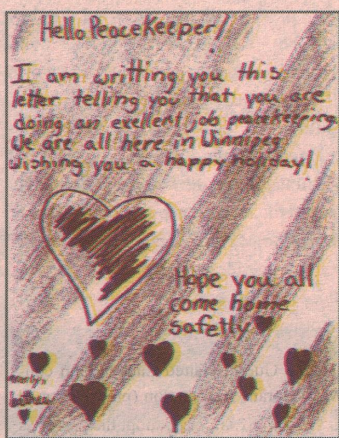 Hello PeaceKeeper!
I am writting you this
letter telling you that you are
doing an exellent job peacekeeping
We are all here in Winnipeg
wishing you a happy holiday!
Hope you all
come home
safetly